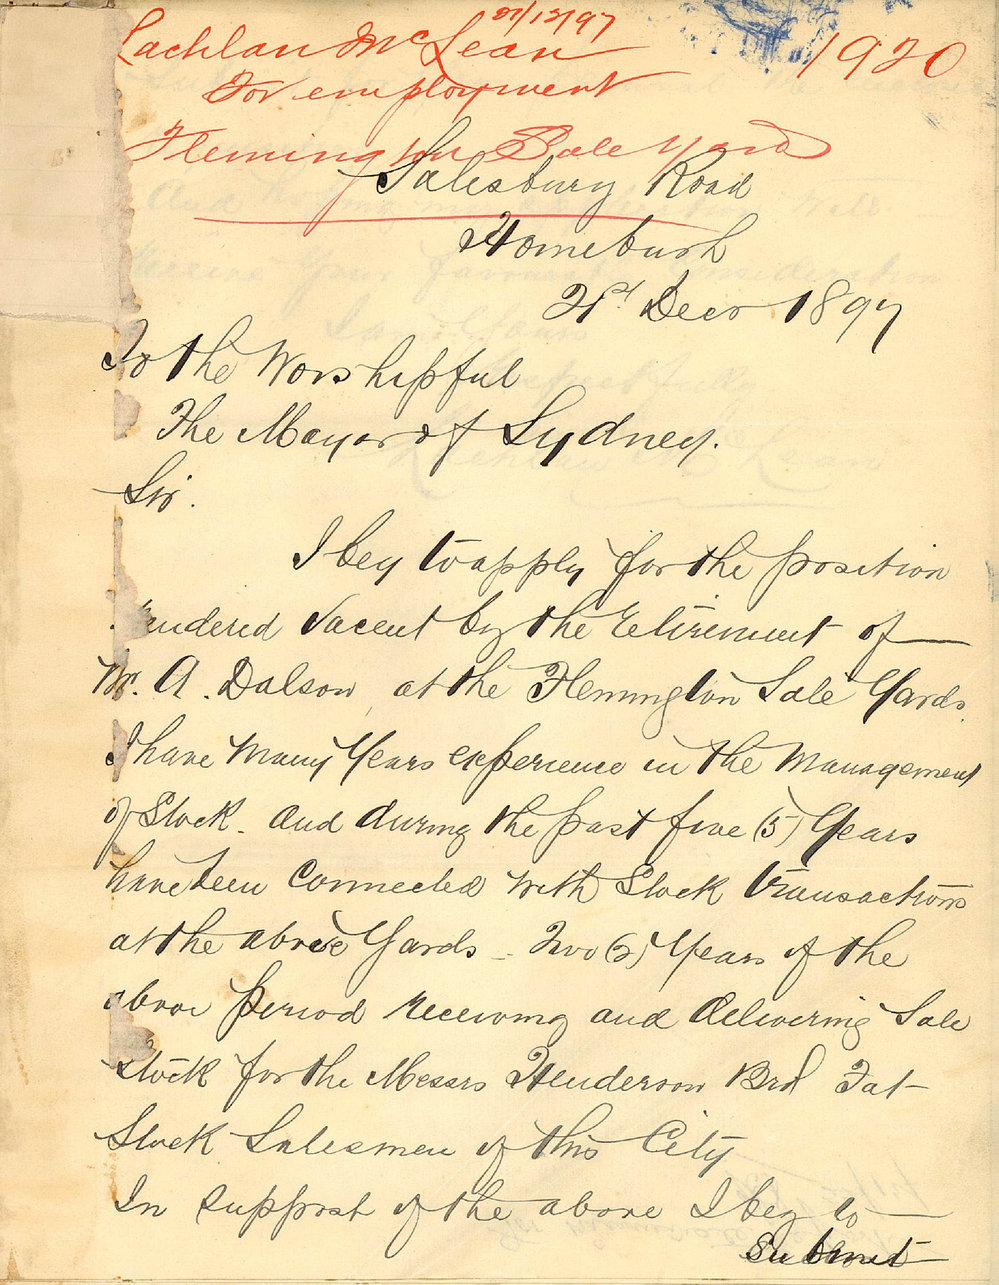 21/12/97
Lachlan McLean 1920
For employment
Flemington Sale Yard
Salesbury Road
Homebush
21st Decr 1897
To the Worshipful
The Mayor of Sydney.
Sir.
I beg to apply for the position
rendered Vacent by the Retirement of
Mr. A. Dalson at the Flemington Sale Yards.
I have Many Years experience in the Management
of Stock. and during the past five (5) Years
have been Connected With Stock transactions
at the above Yards - Two (2) Years of the
above period receiving and delivering Sale
Stock for the Messrs Henderson Bros Fat
Stock Salesmen of this City
In support of the above I beg to
Submit